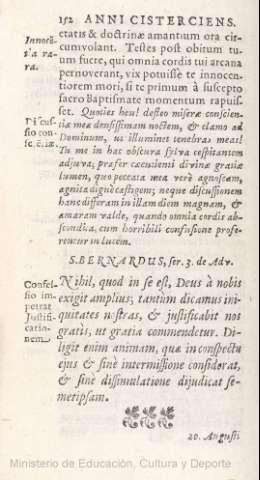 152 ANNI CISTERCIENS.
ctatis & doctrinæ amantium ora cir-
cumvolant. Testes post obitum tu-
um fuere, qui omnia cordis tui arcana
pernoverant, vix potuisse te innocen-
tiorem mori, si te primum à suscepto
sacro Baptismate momentum rapuis-
set. Quoties heu! desleo miseræ conscien-
tiæ meæ densissimam noctem, & clamo ad
Dominum, ut illuminet tenebras meas!
Tu me in hac obscura sylva cespitantem
adjuva; præfer cæcutienti divinæ gratiæ
lumen, quo peccata mea verè agnoscam,
agnita dignè castigem; neque discussionem
hanc differam in illam diem magnam, &
amaram valde, quando omnia cordis ab-
scondita, cum horribili confusione profe-
rentur in lucem.
S. BERNARDUS, ser. 3. de Adv.
Nihil, quod in se est, Deus à nobis
exigit amplius; tantùm dicamus ini-
quitates nostras, & justificabit nos
gratis, ut gratia commendetur. Di-
ligit enim animam, quæ in conspectu
ejus & sinè intermissione considerat,
& sinè dissimulatione dijudicat se-
metipsam.
20. Augusti
Innocē-
ra.
sio con-
Confes-
sio im-
petrat
Justifi-
catio-
nem.
Ministerio de Educación, Cultura y Deporte